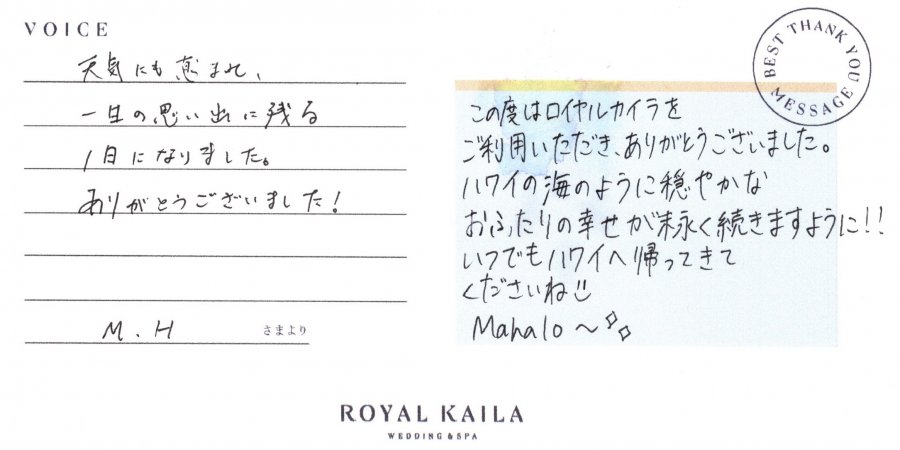 VOICE
天気にも恵まれ、
一生の思い出に残る
1日になりました。
ありがとうございました!
M.H さまより
BEST THANK YOU MESSAGE
この度はロイヤルカイラを
ご利用いただき、ありがとうございました。
ハワイの海のように穏やかな
おふたりの幸せが末永く続きますように!!
いつでもハワイへ帰ってきて
くださいね
Mahalo〜
ROYAL KAILA
WEDDING & SPA